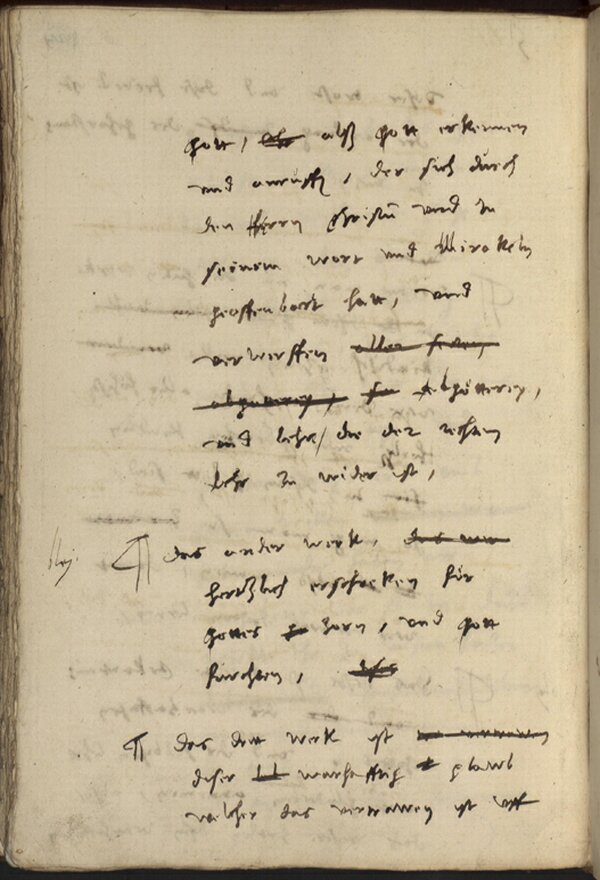 gott, als gott erkennen
und anruffen, der sich durch
den Herrn Christum und in
seinem wort und Mirakeln
geoffenbart hatt, und
verwerffen aller
abgotterey, Abgötterey,
und lehr, die der rechten
lehr zu wider ist,
¶ das ander werk, das
hertzlich erschrecken für
gottes zorn, und gott
fürchten,
¶ das dritt werk ist
diser warhafftig glawb
welcher das vertrawen ist uff